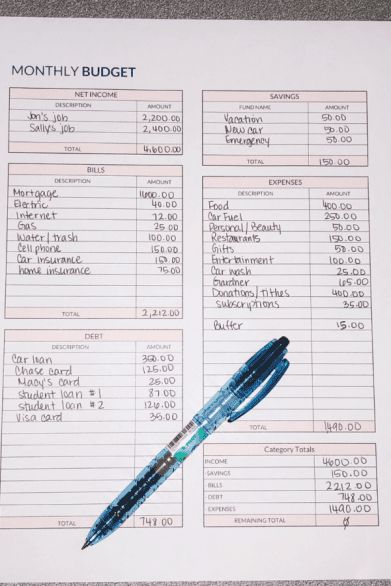 MONTHLY BUDGET
NET INCOME
DESCRIPTION AMOUNT
Jon's job 2,200.00
Sally's job 2,400.00
TOTAL 4,600.00
SAVINGS
FUND NAME AMOUNT
Vacation 50.00
New car 50.00
Emergency 50.00
TOTAL 150.00
BILLS
DESCRIPTION AMOUNT
Mortgage 1600.00
Electric 40.00
Internet 72.00
Gas 25.00
Water/trash 100.00
Cell phone 150.00
Car insurance 150.00
home insurance 75.00
TOTAL 2,212.00
EXPENSES
DESCRIPTION AMOUNT
Food 400.00
Car Fuel
Personal/Beauty 50.00
Restaurants 150.00
Gifts 50.00
Entertainment 100.00
Car wash 25.00
Gardner 65.00
Donations/Tithes 400.00
Subscryptions 35.00
Buffer 15.00
TOTAL 1,490.00
DEBT
DESCRIPTION AMOUNT
Car loan 350.00
Chase card 125.00
Macy's card 25.00
student loan #1 87.00
student loan #2 126.00
Visa card 35.00
TOTAL 748.00
Category Totals
INCOME 4600.00
-SAVINGS 150.00
-BILLS 2212.00
-DEBT 748.00
-EXPENSES 1490.00
REMAINING TOTAL Ø